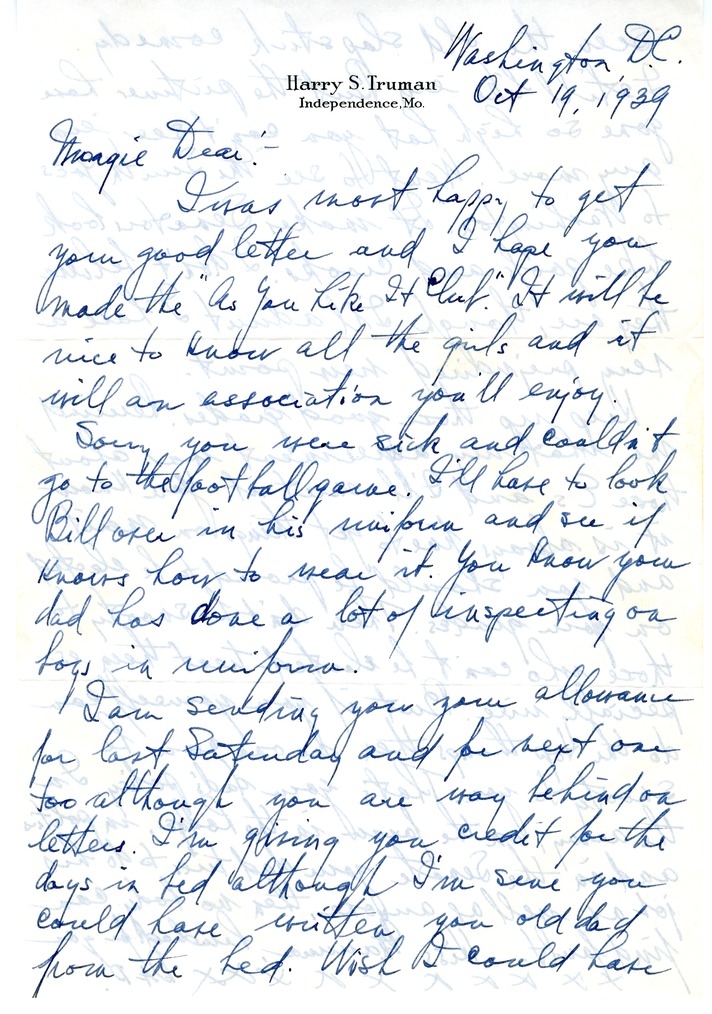 Harry S. Truman
Independence, Mo.
Washington, D.C.
Oct 19, 1939
Margie Dear:-
I was most happy to get
your good letter and I hope you
made the "As You Like It Club". It will be
nice to know all the girls and it
will an association you'll enjoy.
Sorry you were sick and couldn't
go to the football game. I'll have to look
Bill over in his uniform and see if
knows how to wear it. You know your
dad has done a lot of inspecting on
boys in uniform.
I am sending you your allowance
for last Saturday and for next one
too although you are way behind on
letters. I'm giving you credit for the
days in bed although I'm sure you
could have written you old dad
from the bed. Wish I could have